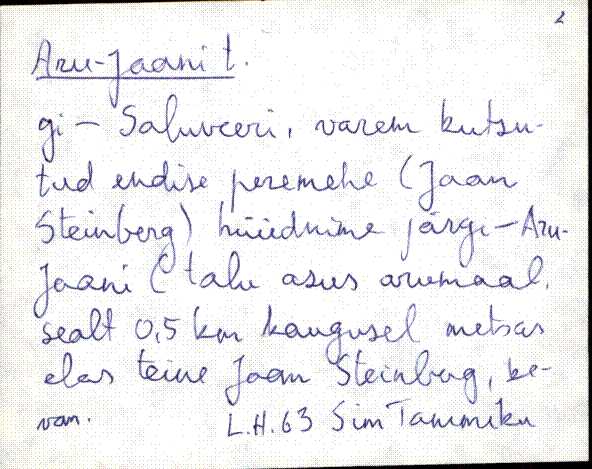 2
Aru-Jaani t.
gi – Saluveeri, varem kutsu-
tud endise peremehe (Jaan
Steinberg) hüüdnime järgi – Aru-
Jaani (talu asus arumaal,
sealt 0,5 km kaugusel metsas
elas teine Jaan Steinberg, ke-
van. L.H. 63 Sim Tammiku